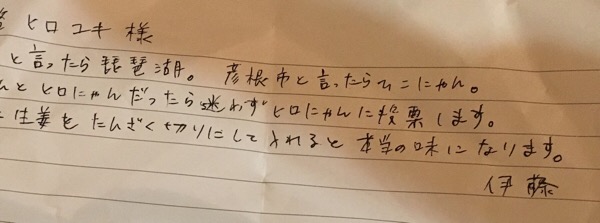 ヒロユキ 様
と言ったら琵琶湖。 彦根市と言ったらひこにゃん。
とヒロにゃんだったら迷わずヒロにゃんに投票します。
生姜をたんざく切りにして入れると本当の味になります。
伊藤